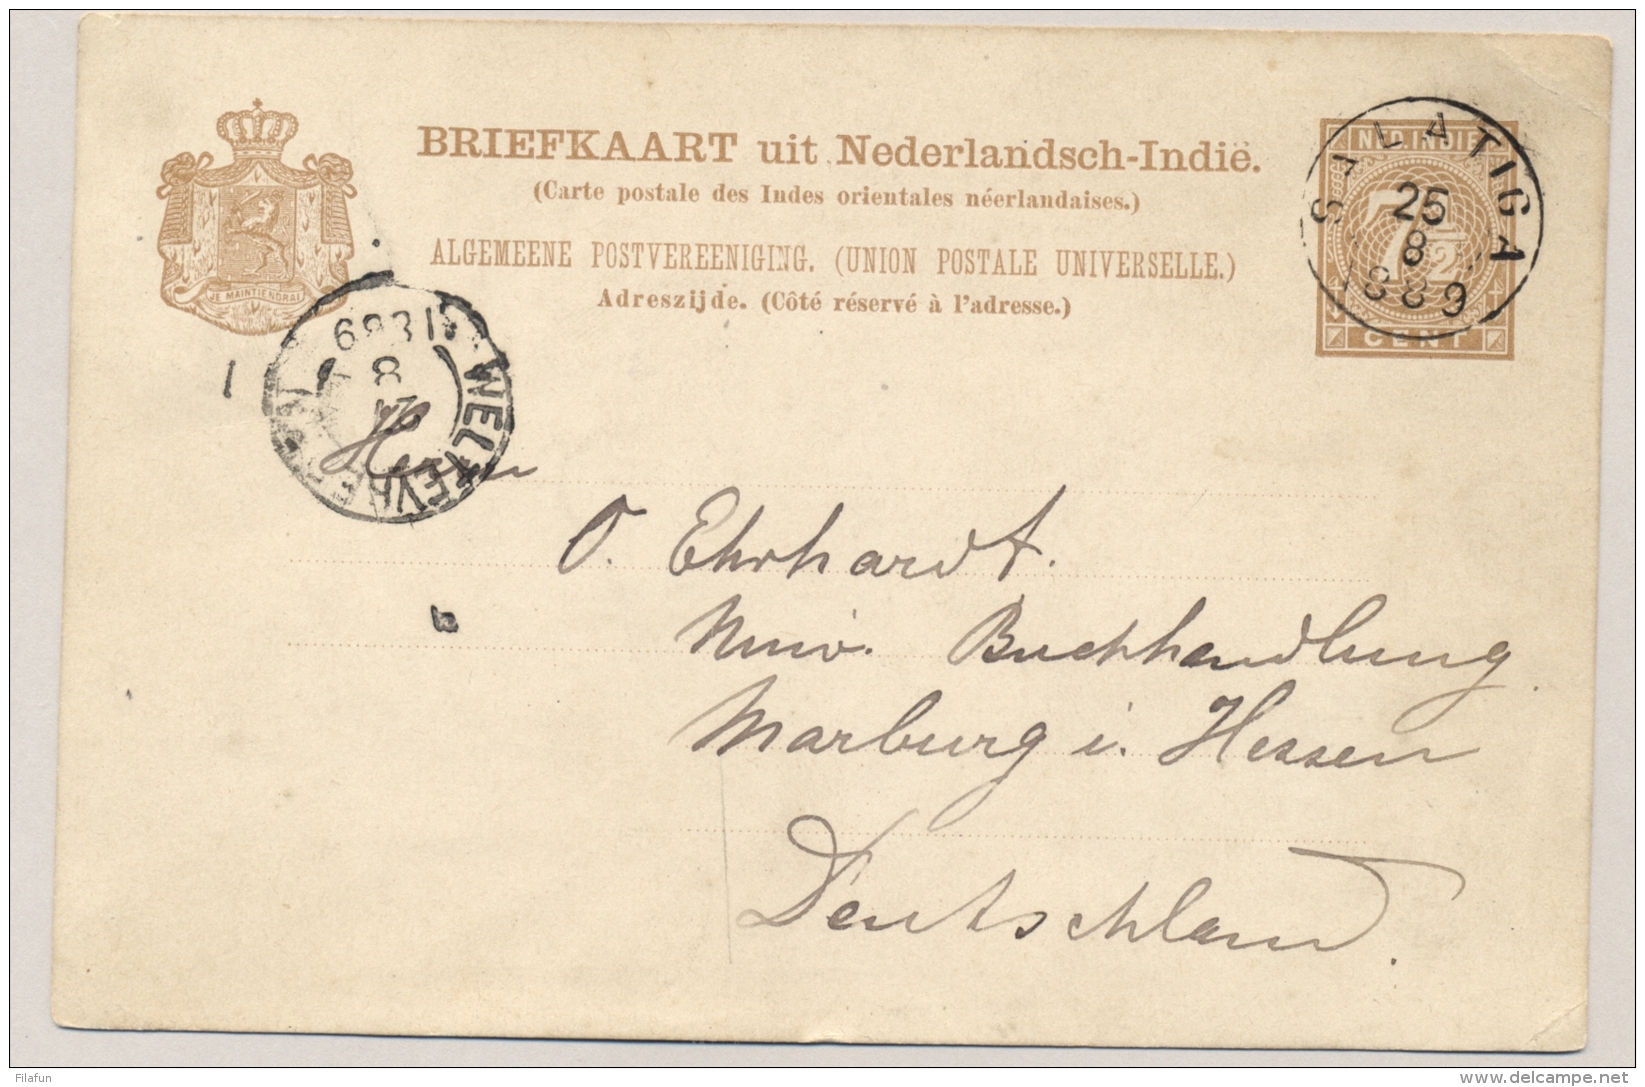 BRIEFKAART uit Nederlandsch-Indië.
(Carte postale des Indes orientales néerlandaises.)
ALGEMEENE POSTVEREENIGING. (UNION POSTALE UNIVERSELLE.)
Adreszijde. (Côté réservé à l'adresse.)
JE MAINTIENDRAI
NED. INDIE
7½
CENT
SALATIGA
25
8
1889
WELTEVREDEN
8
1889
Herrn
O. Ehrhardt.
Univ. Buchhandlung
Marburg i. Hessen
Deutschland.
Filafun
www.delcampe.net